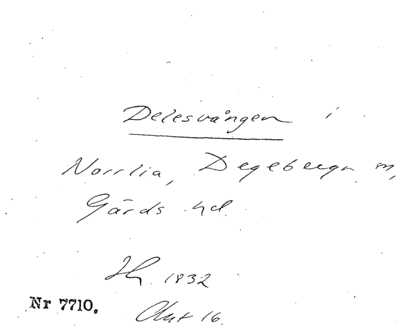 Delesvången i
Norrlia, Degeberga
Gärds hd.
1832
Nr 7710. Akt 16.